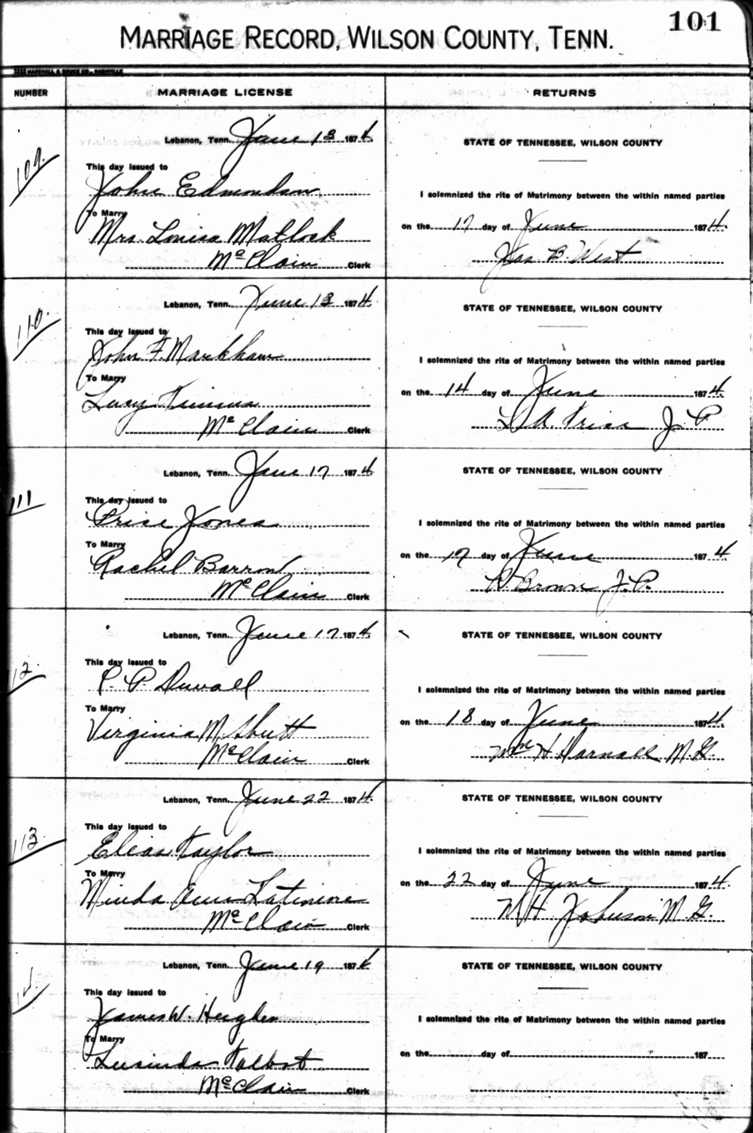 101
MARRIAGE RECORD, WILSON COUNTY, TENN.
NUMBER MARRIAGE LICENSE RETURNS
109
Lebanon, Tenn. June 13 1874
This day issued to
John Edmondson
To Marry
Mrs. Louisa Matlock
McClain Clerk
STATE OF TENNESSEE, WILSON COUNTY
I solemnized the rite of Matrimony between the within named parties
on the 17 day of June 1874.
Jas B. West
110
Lebanon, Tenn. June 13 1874.
This day issued to
John F. Markham
To Marry
Lucy
McClain Clerk
STATE OF TENNESSEE, WILSON COUNTY
I solemnized the rite of Matrimony between the within named parties
on the 14 day of June 1874.
L. A. J. P.
111
Lebanon, Tenn. June 17 1874
This day issued to
Price Jones
To Marry
Rachel Barron
McClain Clerk
STATE OF TENNESSEE, WILSON COUNTY
I solemnized the rite of Matrimony between the within named parties
on the 17 day of June 1874
R. Brown J. P.
12.
Lebanon, Tenn. June 17 1874.
This day issued to
P. P. Duvall
To Marry
Virginia M. Shutt
McClain Clerk
STATE OF TENNESSEE, WILSON COUNTY
I solemnized the rite of Matrimony between the within named parties
on the 18 day of June 1874.
Wm H. Darnall M. G.
113
Lebanon, Tenn. June 22 1874.
This day issued to
Elias Taylor
To Marry
Minda Ann Latimore
McClain Clerk
STATE OF TENNESSEE, WILSON COUNTY
I solemnized the rite of Matrimony between the within named parties
on the 22 day of June 1874.
H. Johnson M. G.
Lebanon, Tenn. June 19 1874
This day issued to
James W. Hughes
To Marry
Lucinda Talbot
McClain Clerk
STATE OF TENNESSEE, WILSON COUNTY
I solemnized the rite of Matrimony between the within named parties
on the day of 187